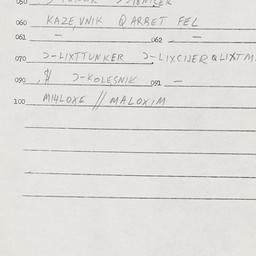 050
060 KAZE,VNIK Q ARBET FEL
061 — 062 —
070 Ɔ-LIXTTUNKER Ɔ-LIXCIJER Q LIXTM
090 ,$ Ɔ-KOLESNIK 091 —
100 MIHLOXE // MALOXIM